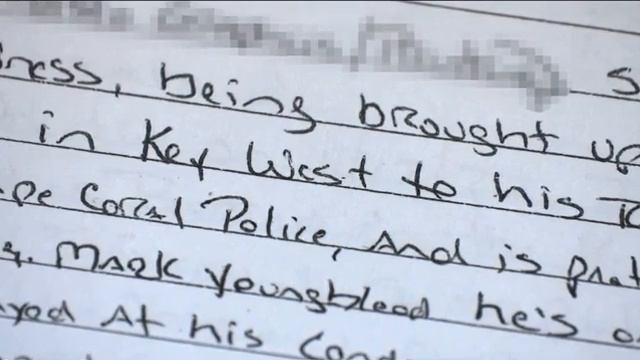 S
ness, being brought up
in Key West to his
pe Coral Police, And is
Mark Youngblood he's
yed At his